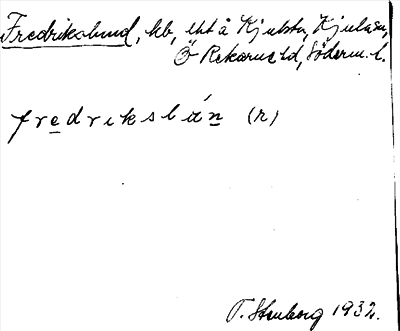 Fredrikslund, hb, lht å Kjulsta, Kjula sn,
Ö Rekarne hd, Söderm. l.
fredrikslún (r)
T. Stenberg 1932.